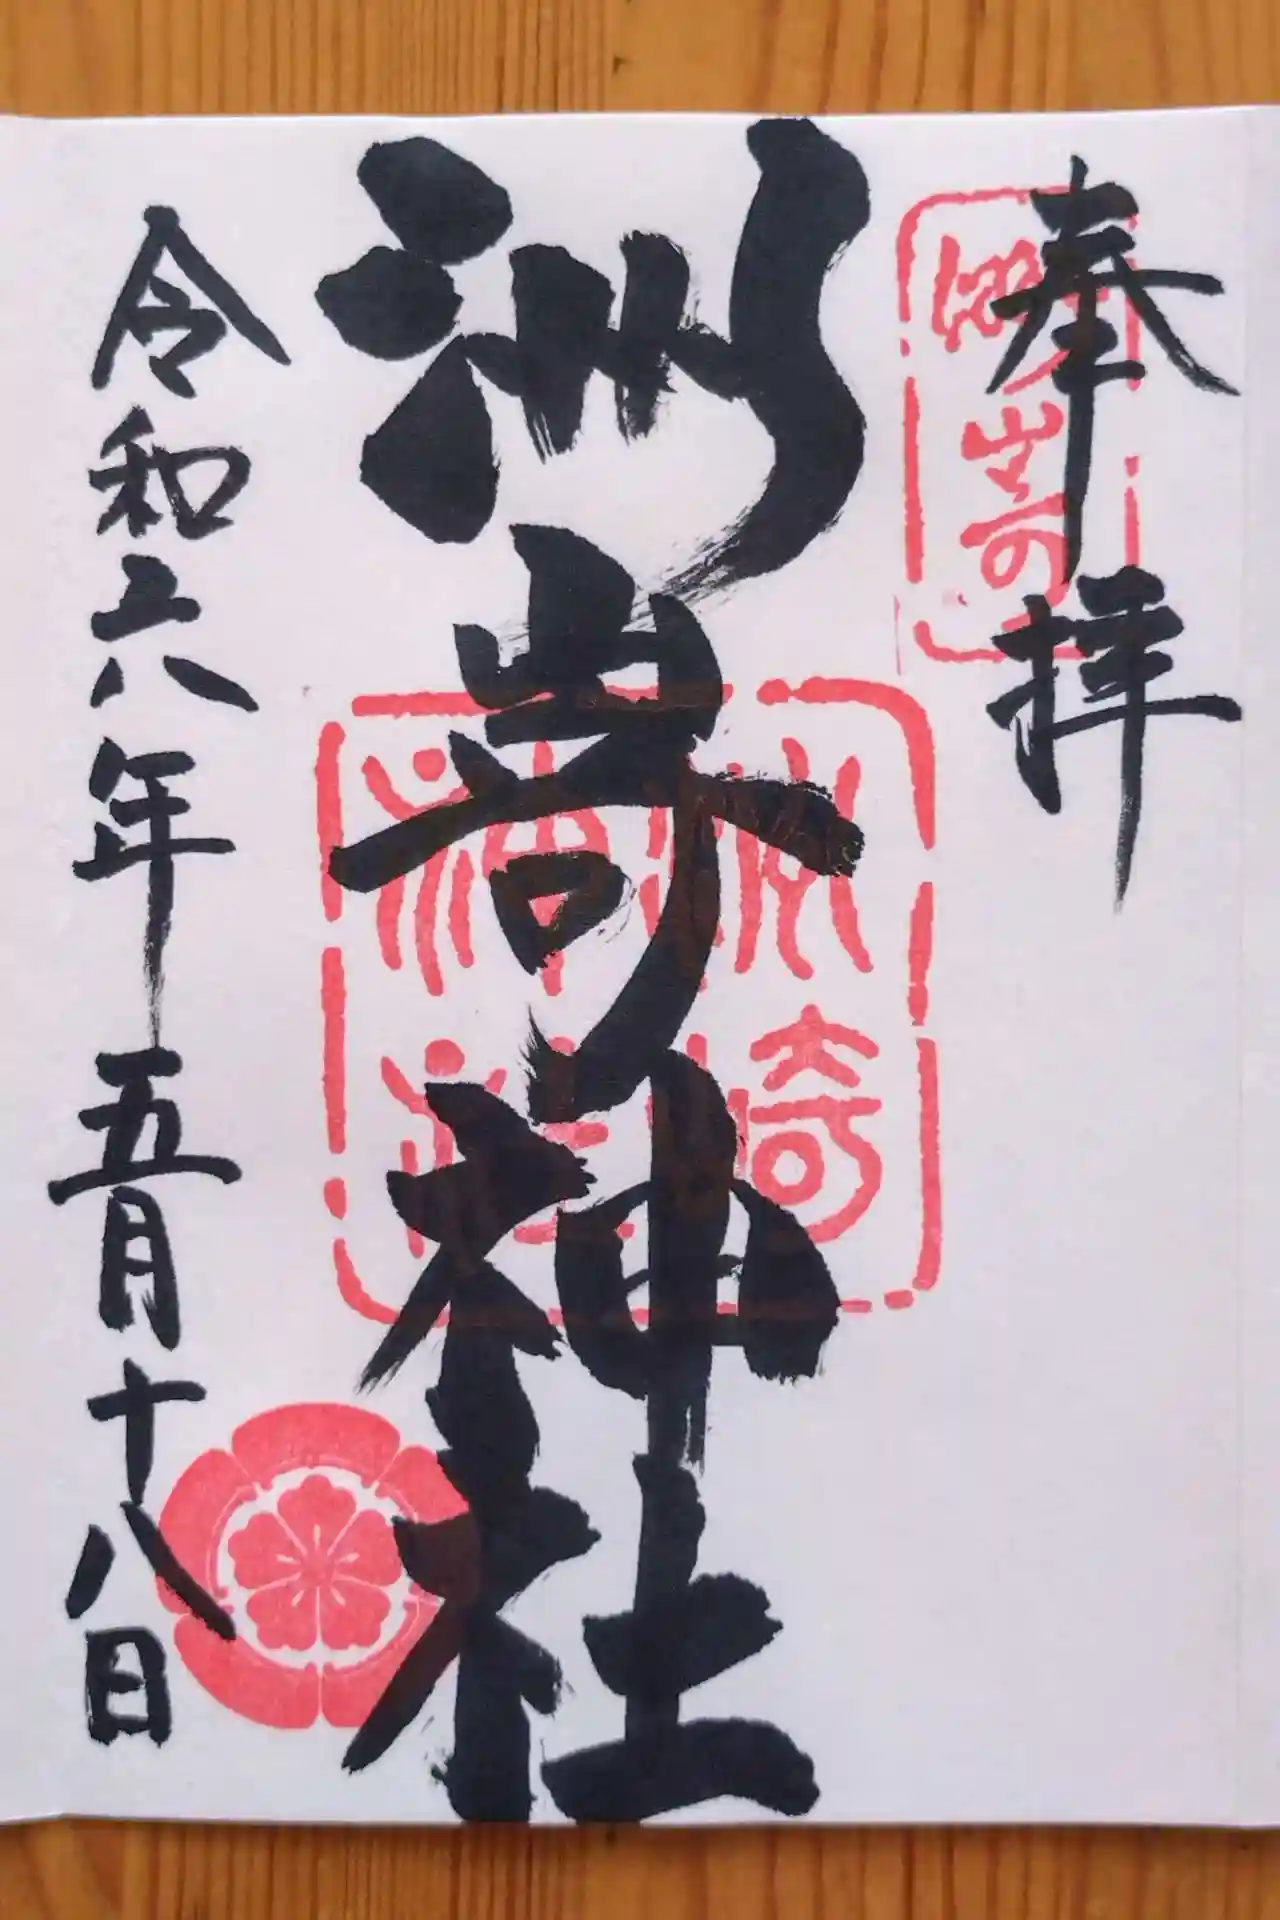 奉拝
洲崎
洲崎神社
洲崎
神社
令和六年五月十八日